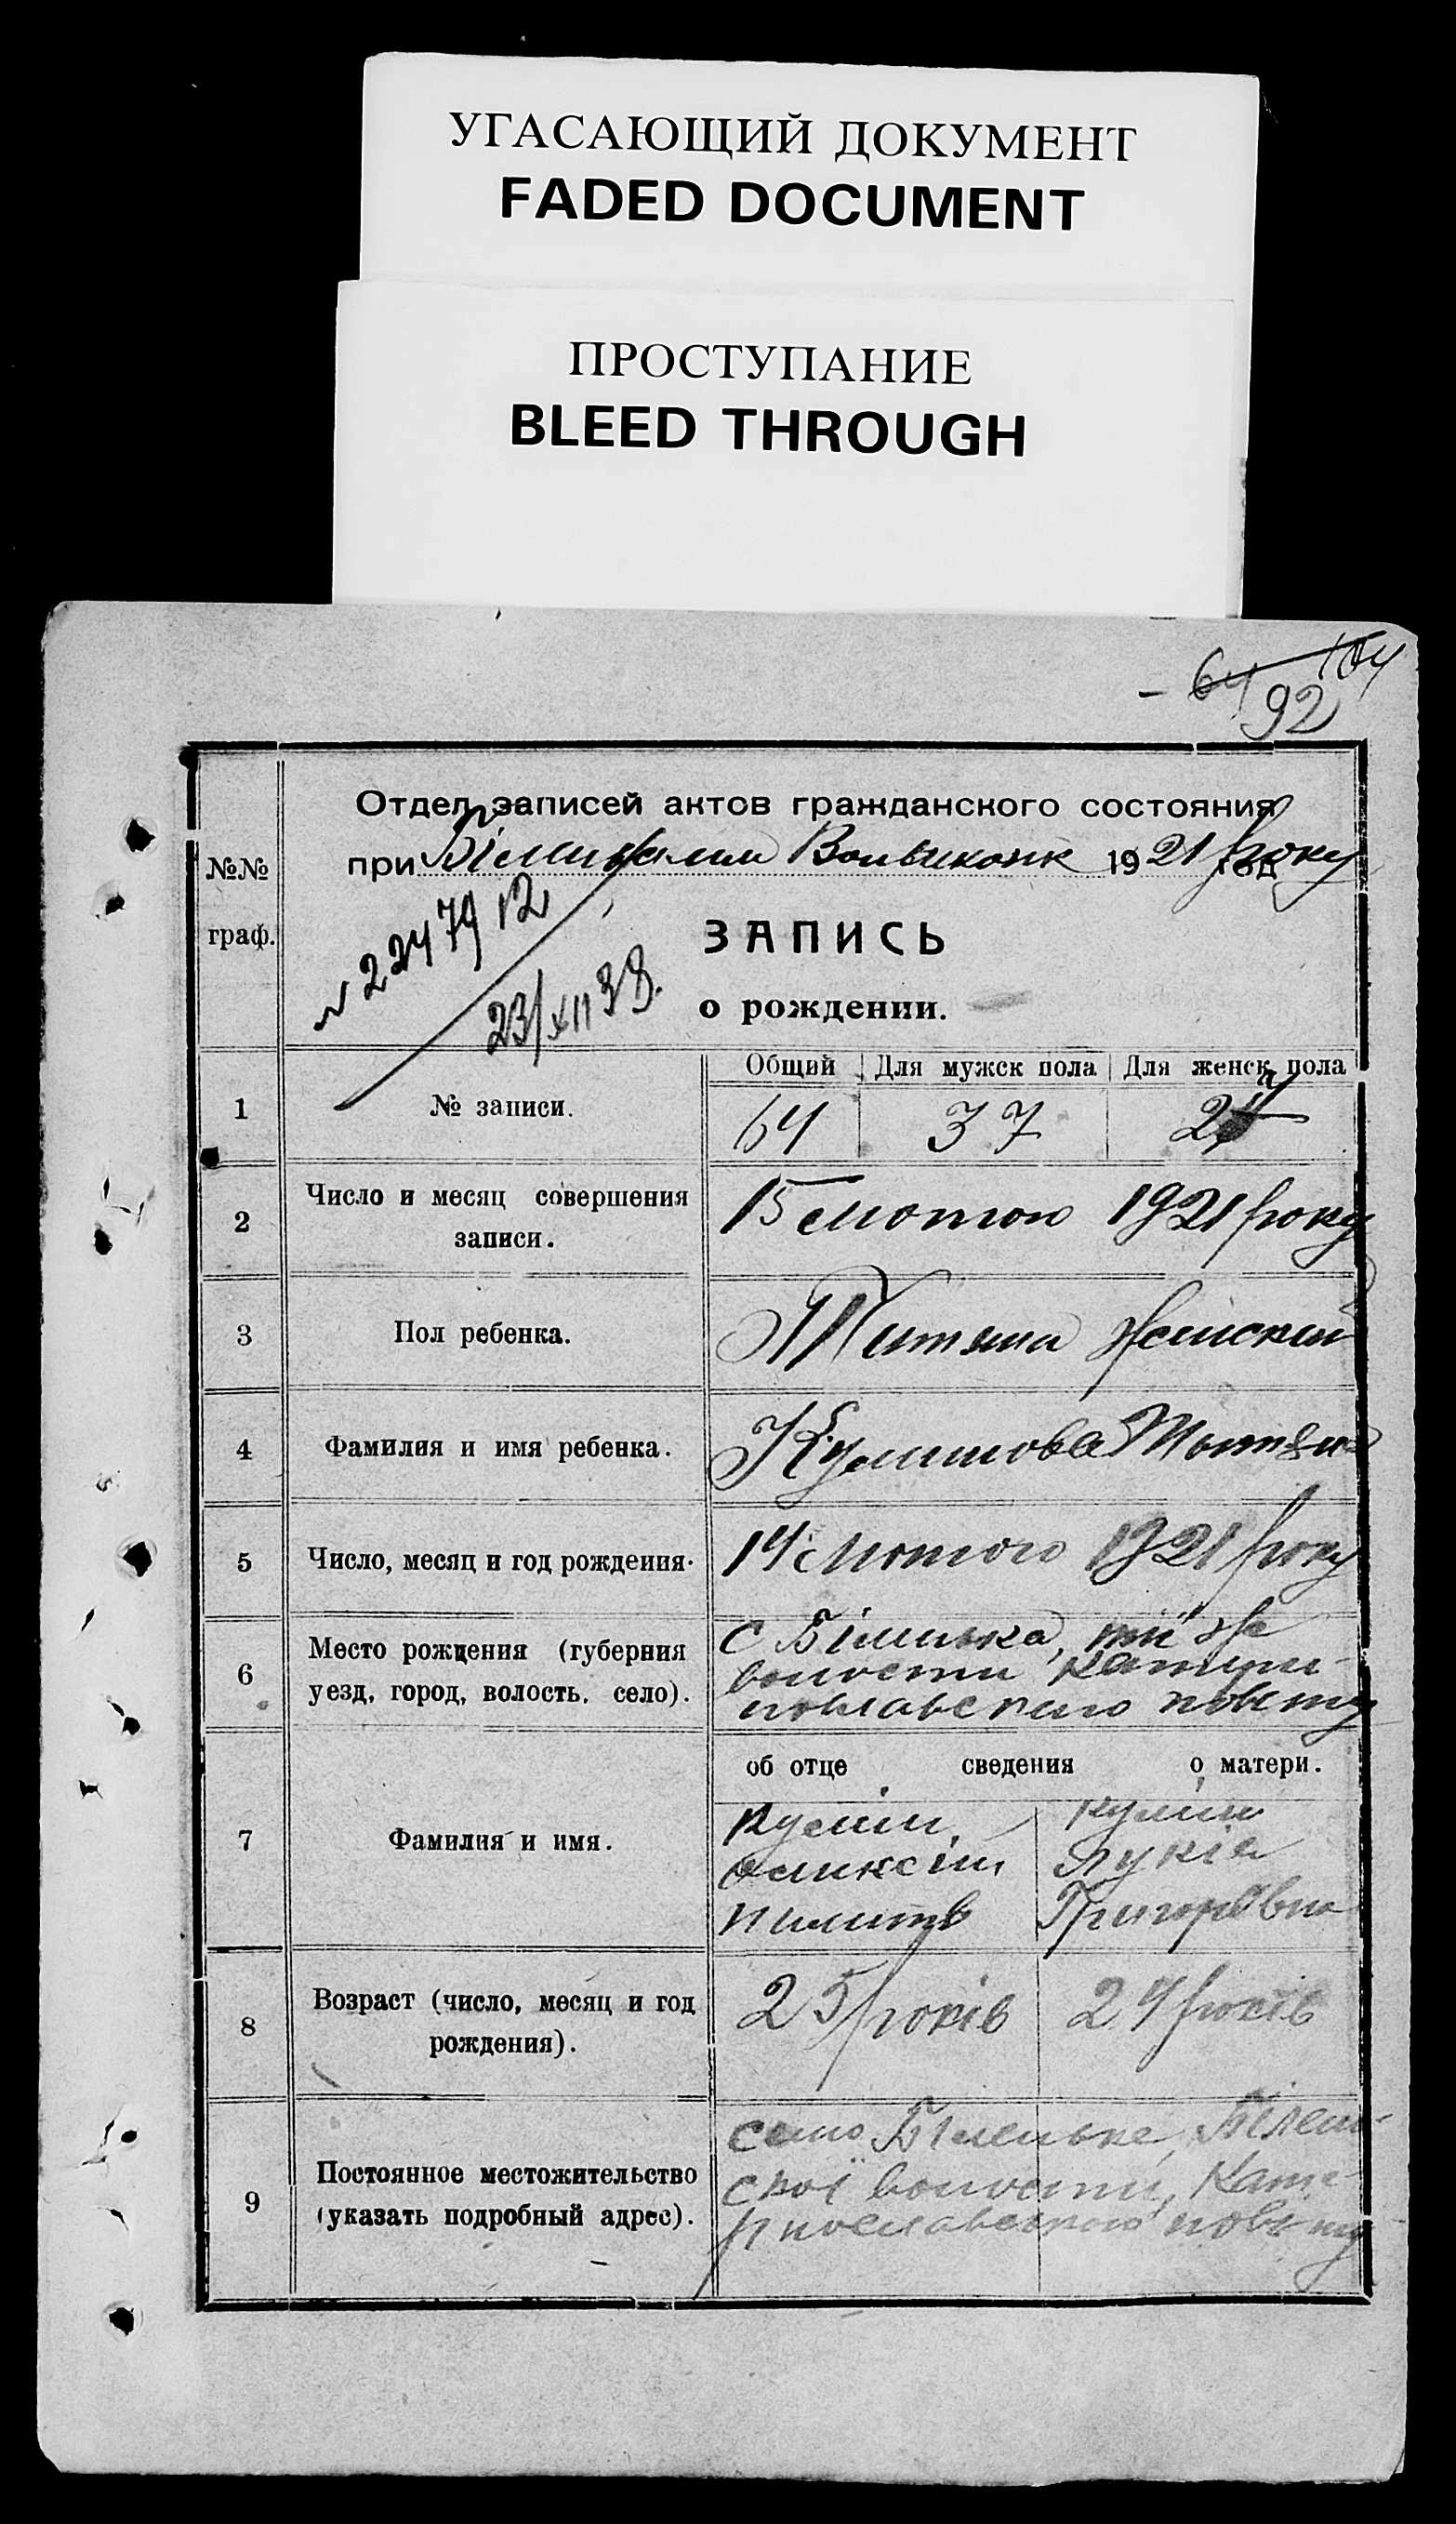 УГАСАЮЩИЙ ДОКУМЕНТ
FADED DOCUMENT
ПРОСТУПАНИЕ
BLEED THROUGH
64 104
92
Отдел записей актов гражданского состояния
при 1921 року год
№№
граф.
№ 2247912
23/XII 38.
ЗАПИСЬ
о рождении.
Общий Для мужск пола Для женск пола
1 № записи. 64 37 27
2 Число и месяц совершения
записи.
15 лютого 1921 року
3 Пол ребенка. женский
4 Фамилия и имя ребенка.
5 Число, месяц и год рождения. 14 лютого 1921 року
6 Место рождения (губерния
уезд, город, волость, село).
с Біленька, тії же
волости
повіту
об отце сведения о матери.
7 Фамилия и имя.
Куліш Куліш
Оликсій Лукія
Григорівна
8 Возраст (число, месяц и год
рождения).
25 років 24 років
9 Постоянное местожительство
(указать подробный адрес).
село Біленьке, Білень-
скої волости, Кате-
ринославського повіту